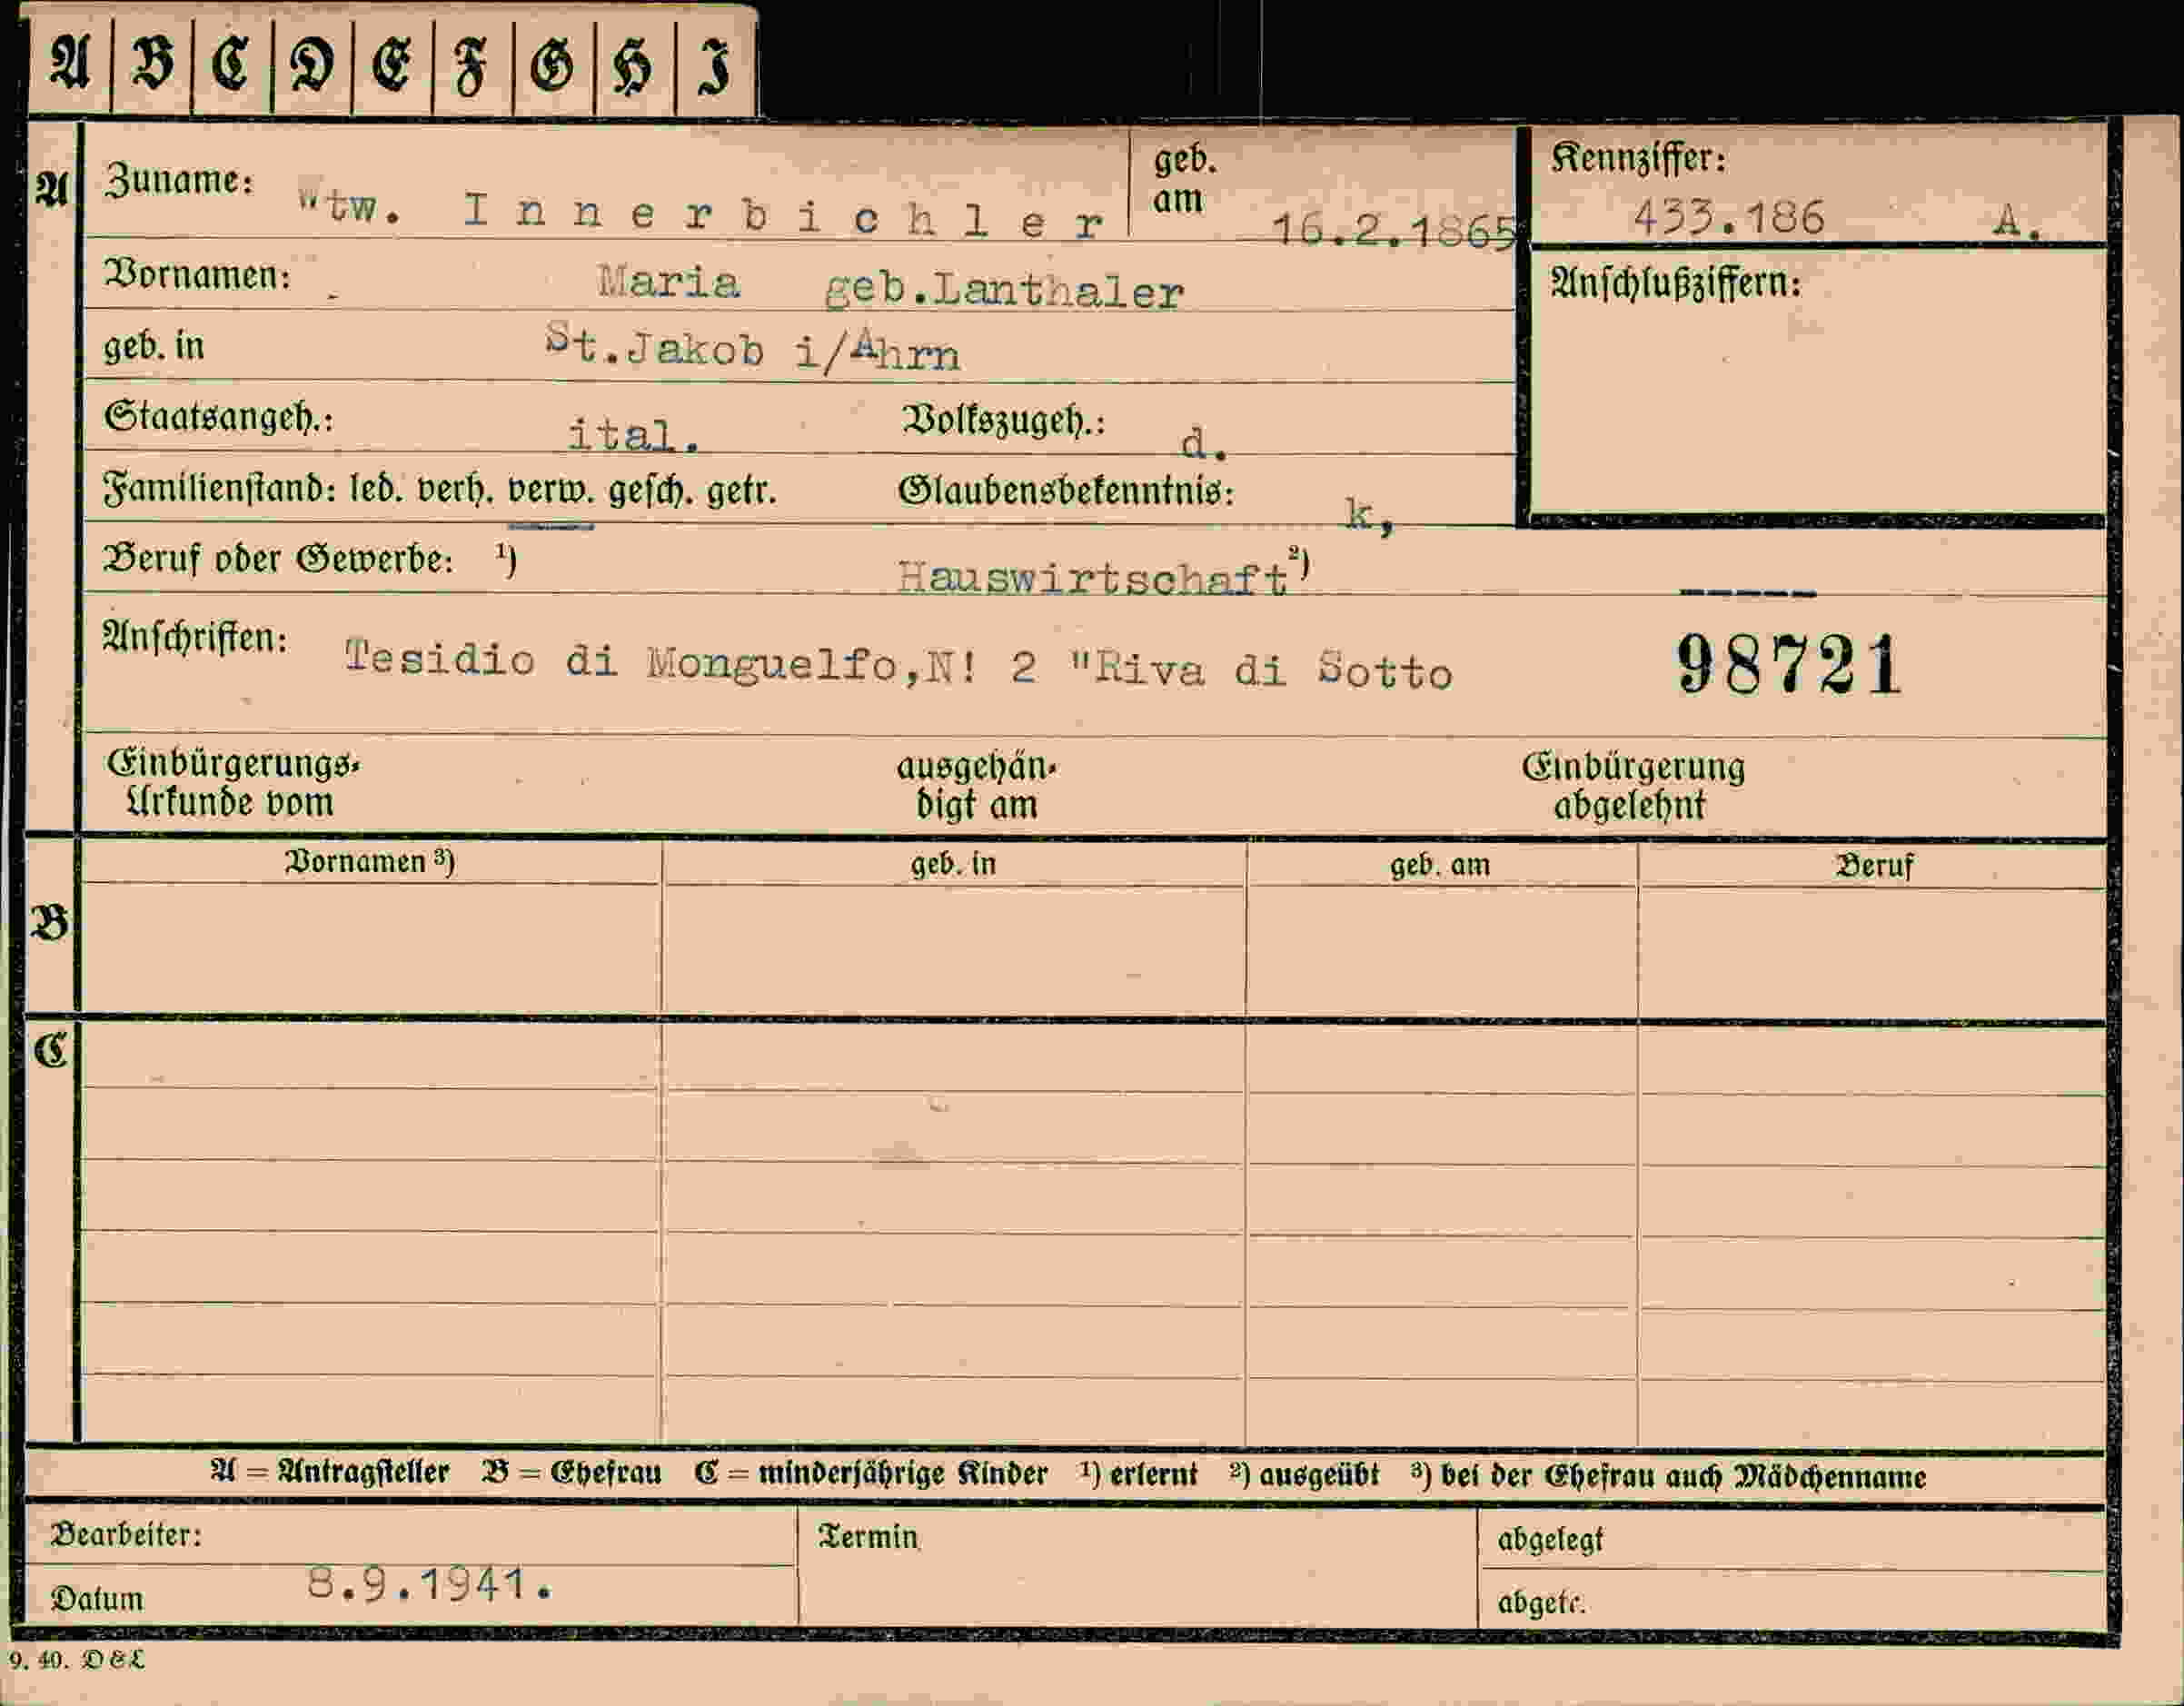 A B C D E F G H I
A
Zuname: Wtw. Innerbichler geb. am 16.2.1865 Kennziffer: 433.186 A.
Vornamen: Maria geb.Lanthaler Anschlußziffern:
geb. in St.Jakob i/Ahrn
Staatsangeh.: ital. Volkszugeh.: d.
Familienstand: led. verh. verw. gesch. getr. Glaubensbekenntnis: k,
Beruf oder Gewerbe: ¹) Hauswirtschaft ²) -----
Anschriften: Tesidio di Monguelfo,N! 2 "Riva di Sotto 98721
Einbürgerungs- ausgehän- Einbürgerung
Urkunde vom digt am abgelehnt
Vornamen ³) geb. in geb. am Beruf
B
C
A = Antragsteller B = Ehefrau C = minderjährige Kinder ¹) erlernt ²) ausgeübt ³) bei der Ehefrau auch Mädchenname
Bearbeiter: Termin abgelegt
Datum 8.9.1941. abgetr.
9. 40. D & L